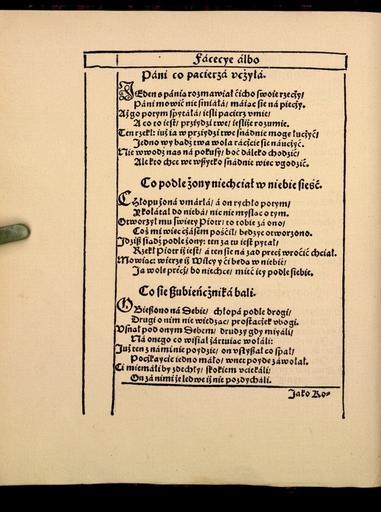 Fácecye álbo
Páni co pacierzá vcżyłá.
IEden s pánią rozmawiał cicho swoie rzecży/
Páni mowić nie śmiáłá/ máiąc sie ná piecży.
Aż go potym spytáłá/ iesli pacierz vmie/
A co to iest/ przyidzi twe/ iesliże rozumie.
Ten rzekł: iuż ia w przyidzi twe snádnie mogę
Jedno wy bądź twa wola rácżcie sie náucżyć.
Nie wwodź nas ná pokusy/ boć dáleko chodzić/
Ale kto chce we wszytko snádnie wiec vgodzić.
Co podle żony niechciał w niebie sieść.
CHłopu żoná vmárłá/ á on rychło potym/
Kołatał do niebá/ nic nie mysląc o tym.
Otworzył mu święty Piotr/ to robie zá ono/
Coś mi wiec cżásem pościł/ będzyć otworzono.
Jdziż siądź podle żony: ten zá tu iest pytał/
Rzekł Piotr iż iest/ á ten sie ná zad precż wrocić chciał.
Mowiąc wierzę iż Wilcy y ci będą w niebie/
Ja wolę precż/ bo nie chcę/ mieć iey podle siebie.
Co sie Szubienicżniká bali.
OBieszono ná Debie/ chłopá podle drogi/
Drugi o nim nie wiedząc/ prostacżek vbogi.
Vsnął pod onym Debem/ drudzy gdy mijáli/
Ná onego co wisiał żártuiąc wołáli:
Już ten z námi nie poydzie/ on vsłyszał co spał/
Pocżkaycie iedno máło/ wnet poydę záwołał.
Ci mniemáli by zdechły/ skokiem vciekáli/
On zá nimi ie ledwe iż nie pozdycháli.
Jáko Ko⸗